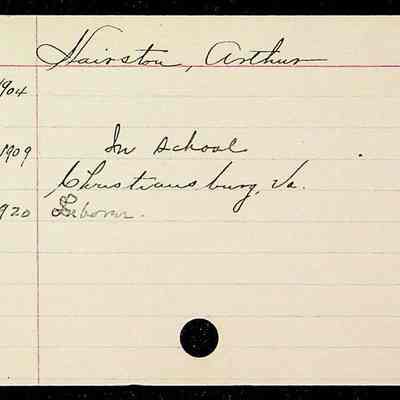 Hairston, Arthur
1904
1909 In school
Christiansburg, Va.
1920 Laborer.